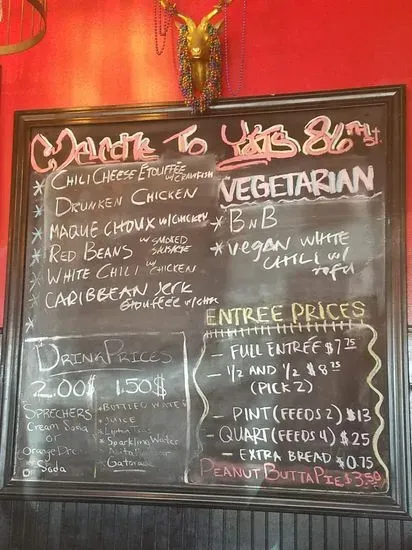 Welcome To Yats 86th St.
* Chili Cheese Étouffée w/ crawfish
* Drunken Chicken
* Maque Choux w/ chicken
* Red Beans w/ smoked sausage
* White Chili w/ chicken
* Caribbean Jerk
Etouffée w/
*
VEGETARIAN
* BnB
* Vegan White
Chili w/
tofu
ENTREE PRICES
- FULL ENTRÉE $7.75
- 1/2 AND 1/2 $8.75
(PICK 2)
- PINT (FEEDS 2) $13
- QUART (FEEDS 4) $25
- EXTRA BREAD $0.75
PEANUT BUTTA PIE $3.50
Drink Prices
2.00$
SPRECHERS
Cream Soda
or
Orange Dream
Soda
1.50$
* Bottled Water
* Juice
* Lipton Teas
* Sparkling Water
* Gatorade